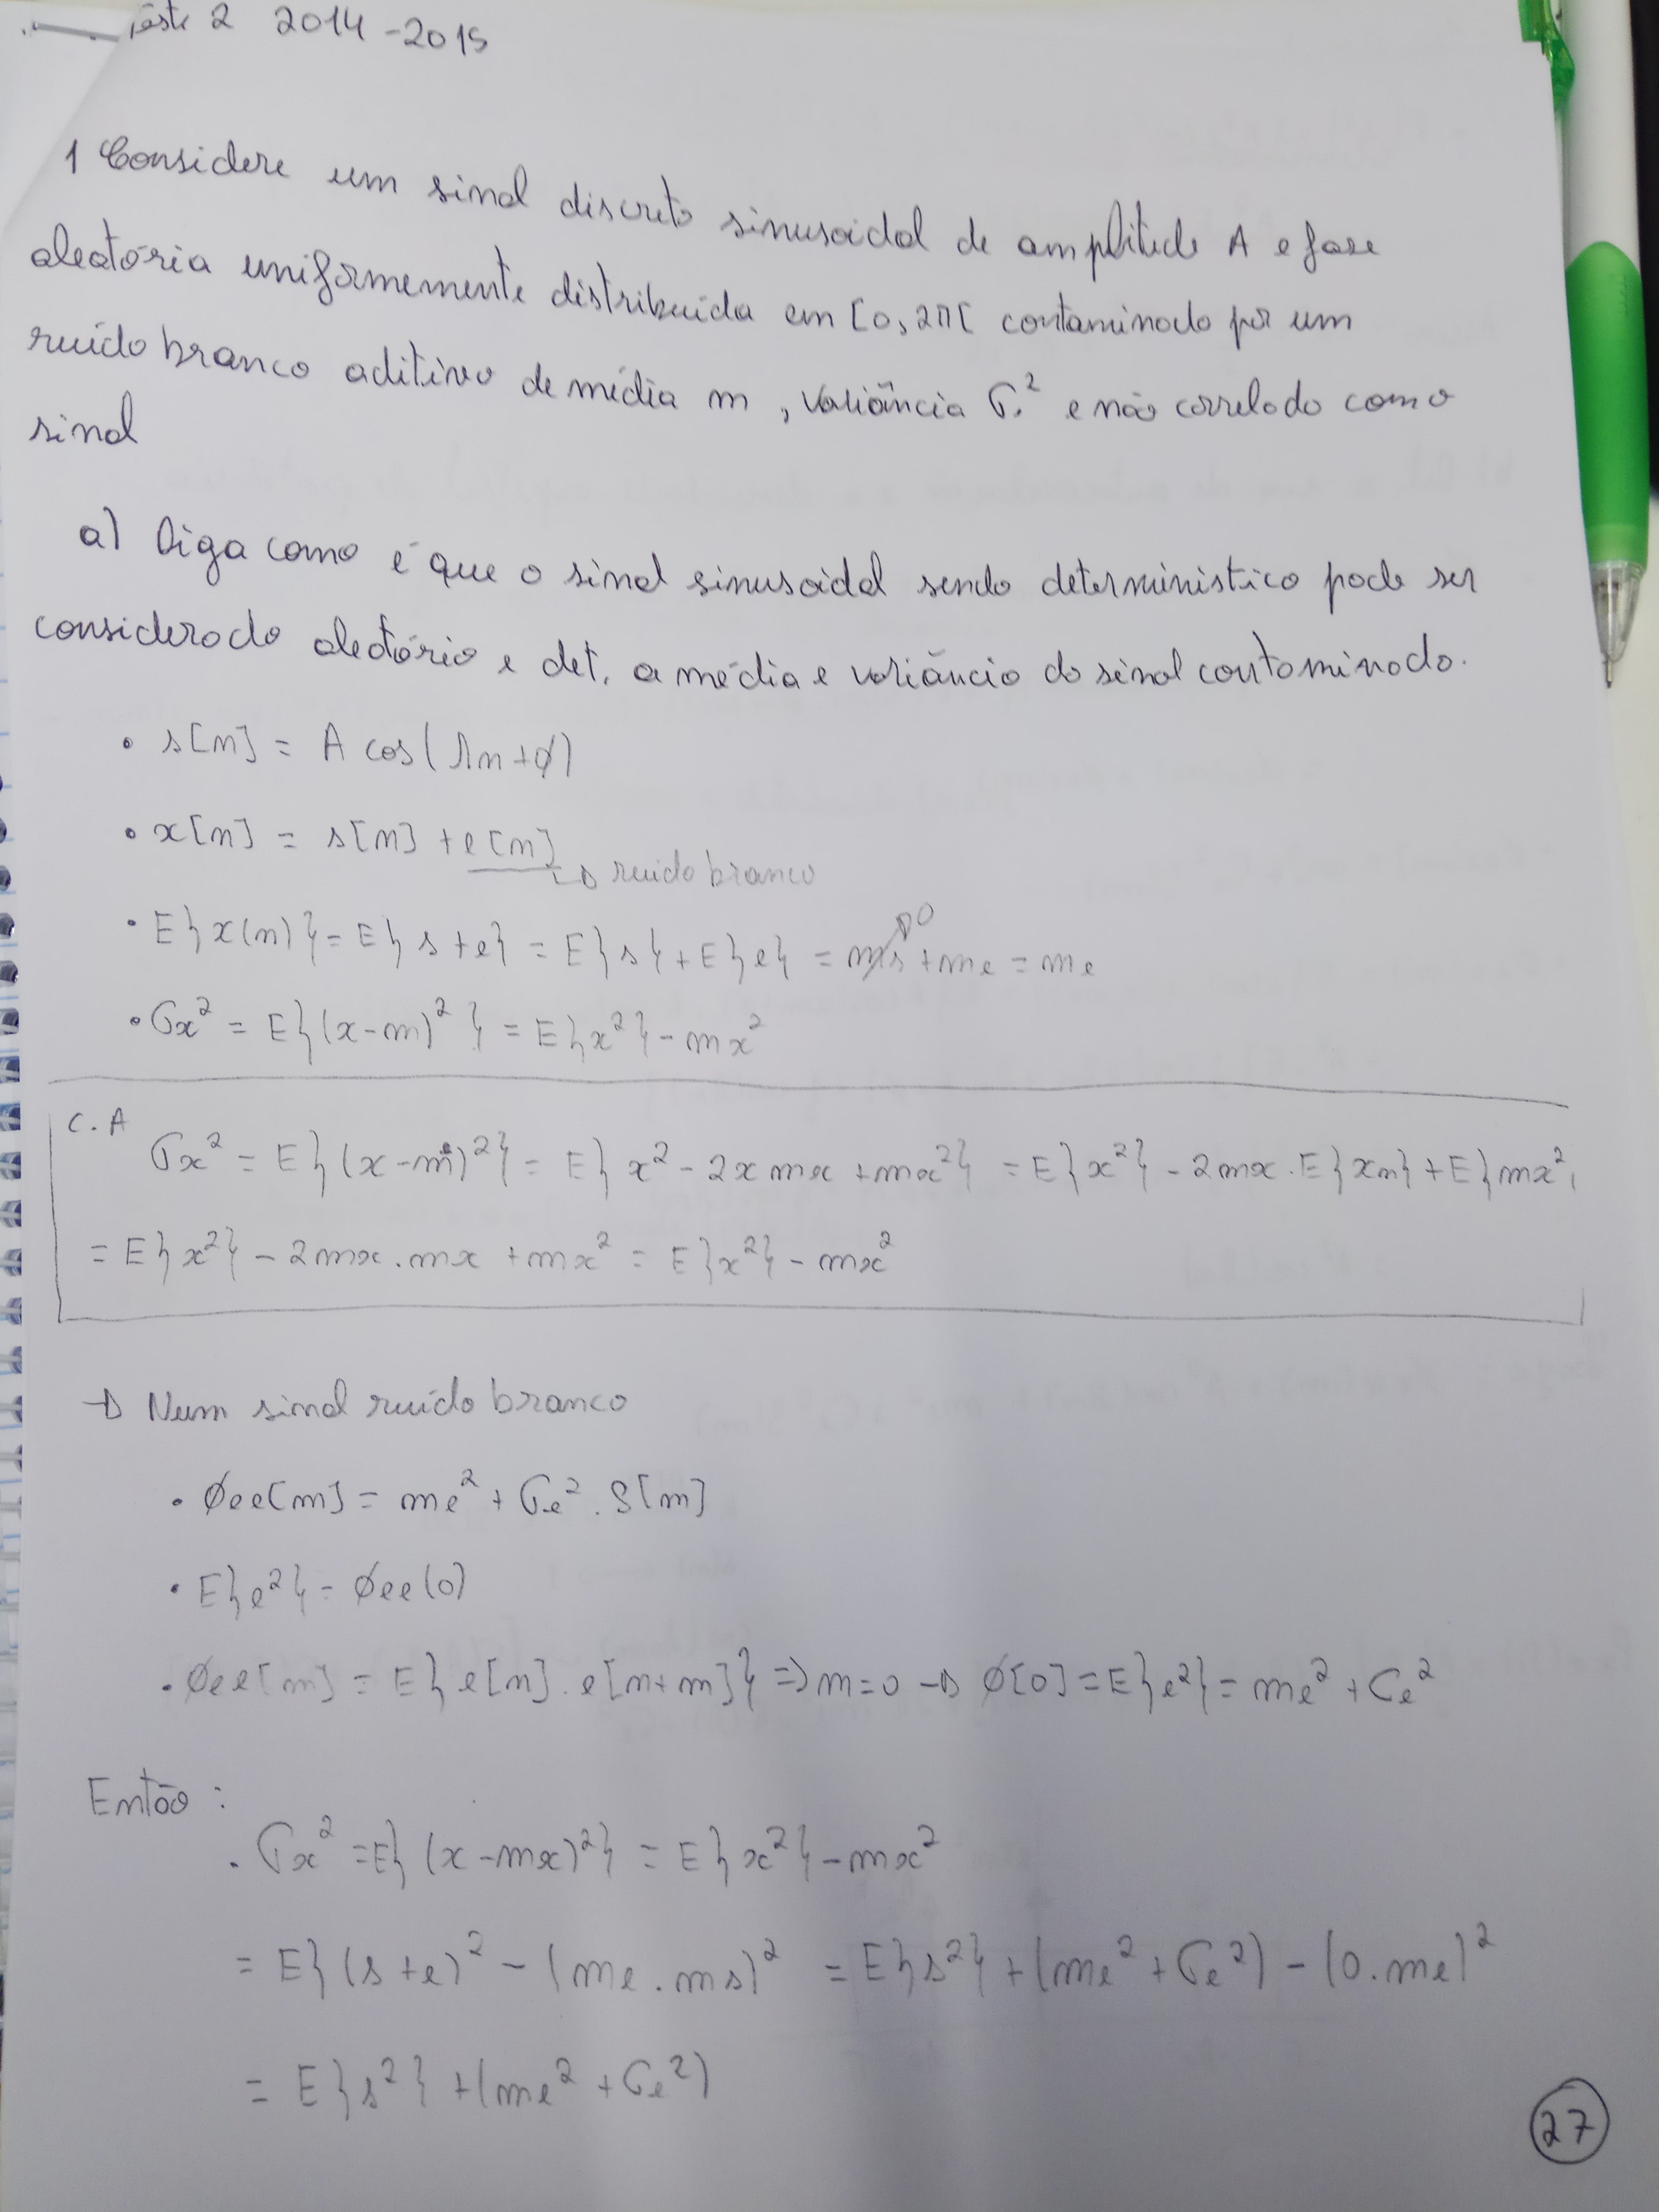 Teste 2 2014-2015
1 Considere um sinal discreto sinusoidal de amplitude A e fase
aleatória uniformemente distribuída em [0, 2π[ contaminado por um
ruído branco aditivo de média m, variância σ.² e não correlado com o
sinal
a) Diga como é que o sinal sinusoidal sendo determinístico pode ser
considerado aleatório e det. a média e variância do sinal contaminado.
• s[n] = A cos(Ωn+φ)
• x[n] = s[n] + e[n]
↳ ruido branco
• E{x(n)} = E{s+e} = E{s} + E{e} = ms→0 + me = me
• σx² = E{(x-m)²} = E{x²} - mx²
C.A
σx² = E{(x-m)²} = E{x² - 2x mx + mx²} = E{x²} - 2mx . E{xn} + E{mx²}
= E{x²} - 2mx.mx + mx² = E{x²} - mx²
→ Num sinal ruído branco
• φee[m] = me² + σe² . δ[m]
• E{e²} = φee(0)
• φee[m] = E{e[n].e[n+m]} => m=0 → φ[0] = E{e²} = me² + σe²
Então :
• σx² = E{(x-mx)²} = E{x²} - mx²
= E{(s+e)² - (me.ms)² = E{s²} + (me² + σe²) - (0.me)²
= E{s²} + (me² + σe²)
27